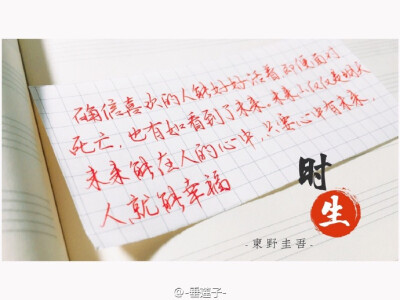 确信喜欢的人能好好活着即便面对
死亡,也有如看到了未来。未来不仅仅是明天
未来能在人的心中,只要心中有未来,
人就能幸福
时
生
-東野圭吾-
@-垂莲子-